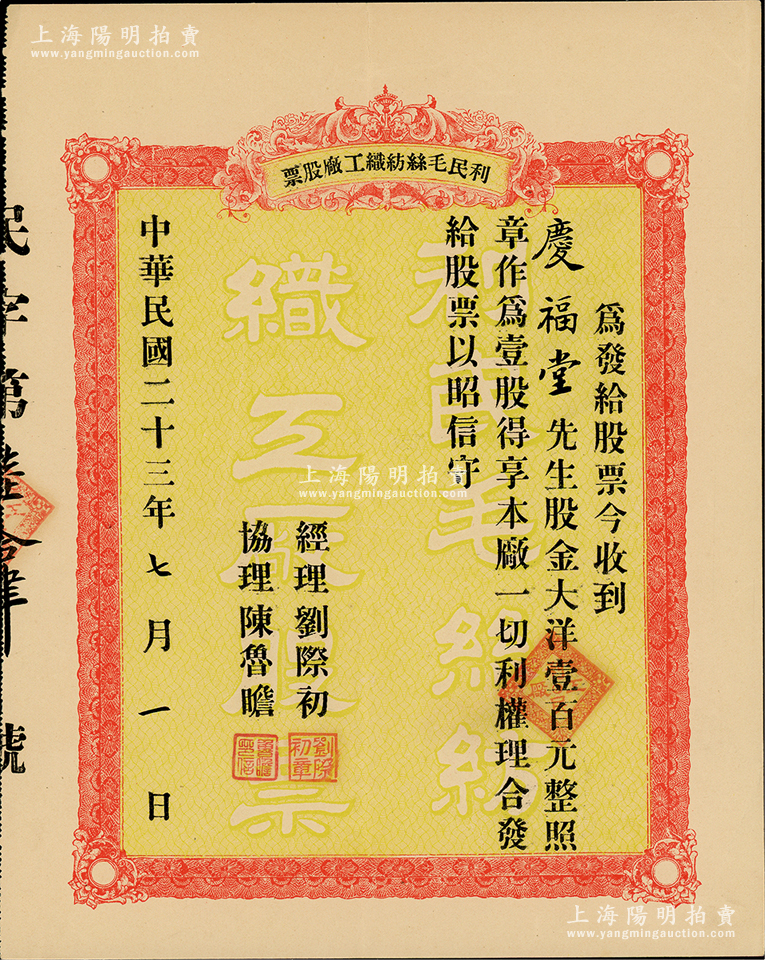 上海陽明拍賣
www.yangmingauction.com
利民毛絲紡織工廠股票
為發給股票今收到
慶福堂先生股金大洋壹百元整照
章作為壹股得享本廠一切利權理合發
給股票以昭信守
經理劉際初
協理陳魯瞻
中華民國二十三年七月一日
民字第陸拾肆號
利民毛絲紡
織工廠股票
劉際初章
上海陽明拍賣
www.yangmingauction.com
上海陽明拍賣
www.yangmingauction.com